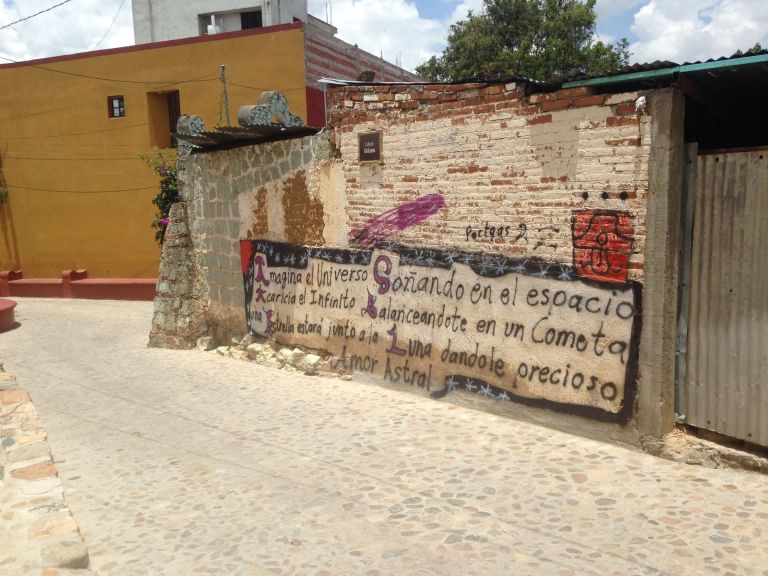 Callejón
Aldama
Portgas 2
Imagina el Universo Soñando en el espacio
Acaricia el Infinito Balanceandote en un Cometa
una Estrella estará junto a la Luna dandole precioso
Amor Astral